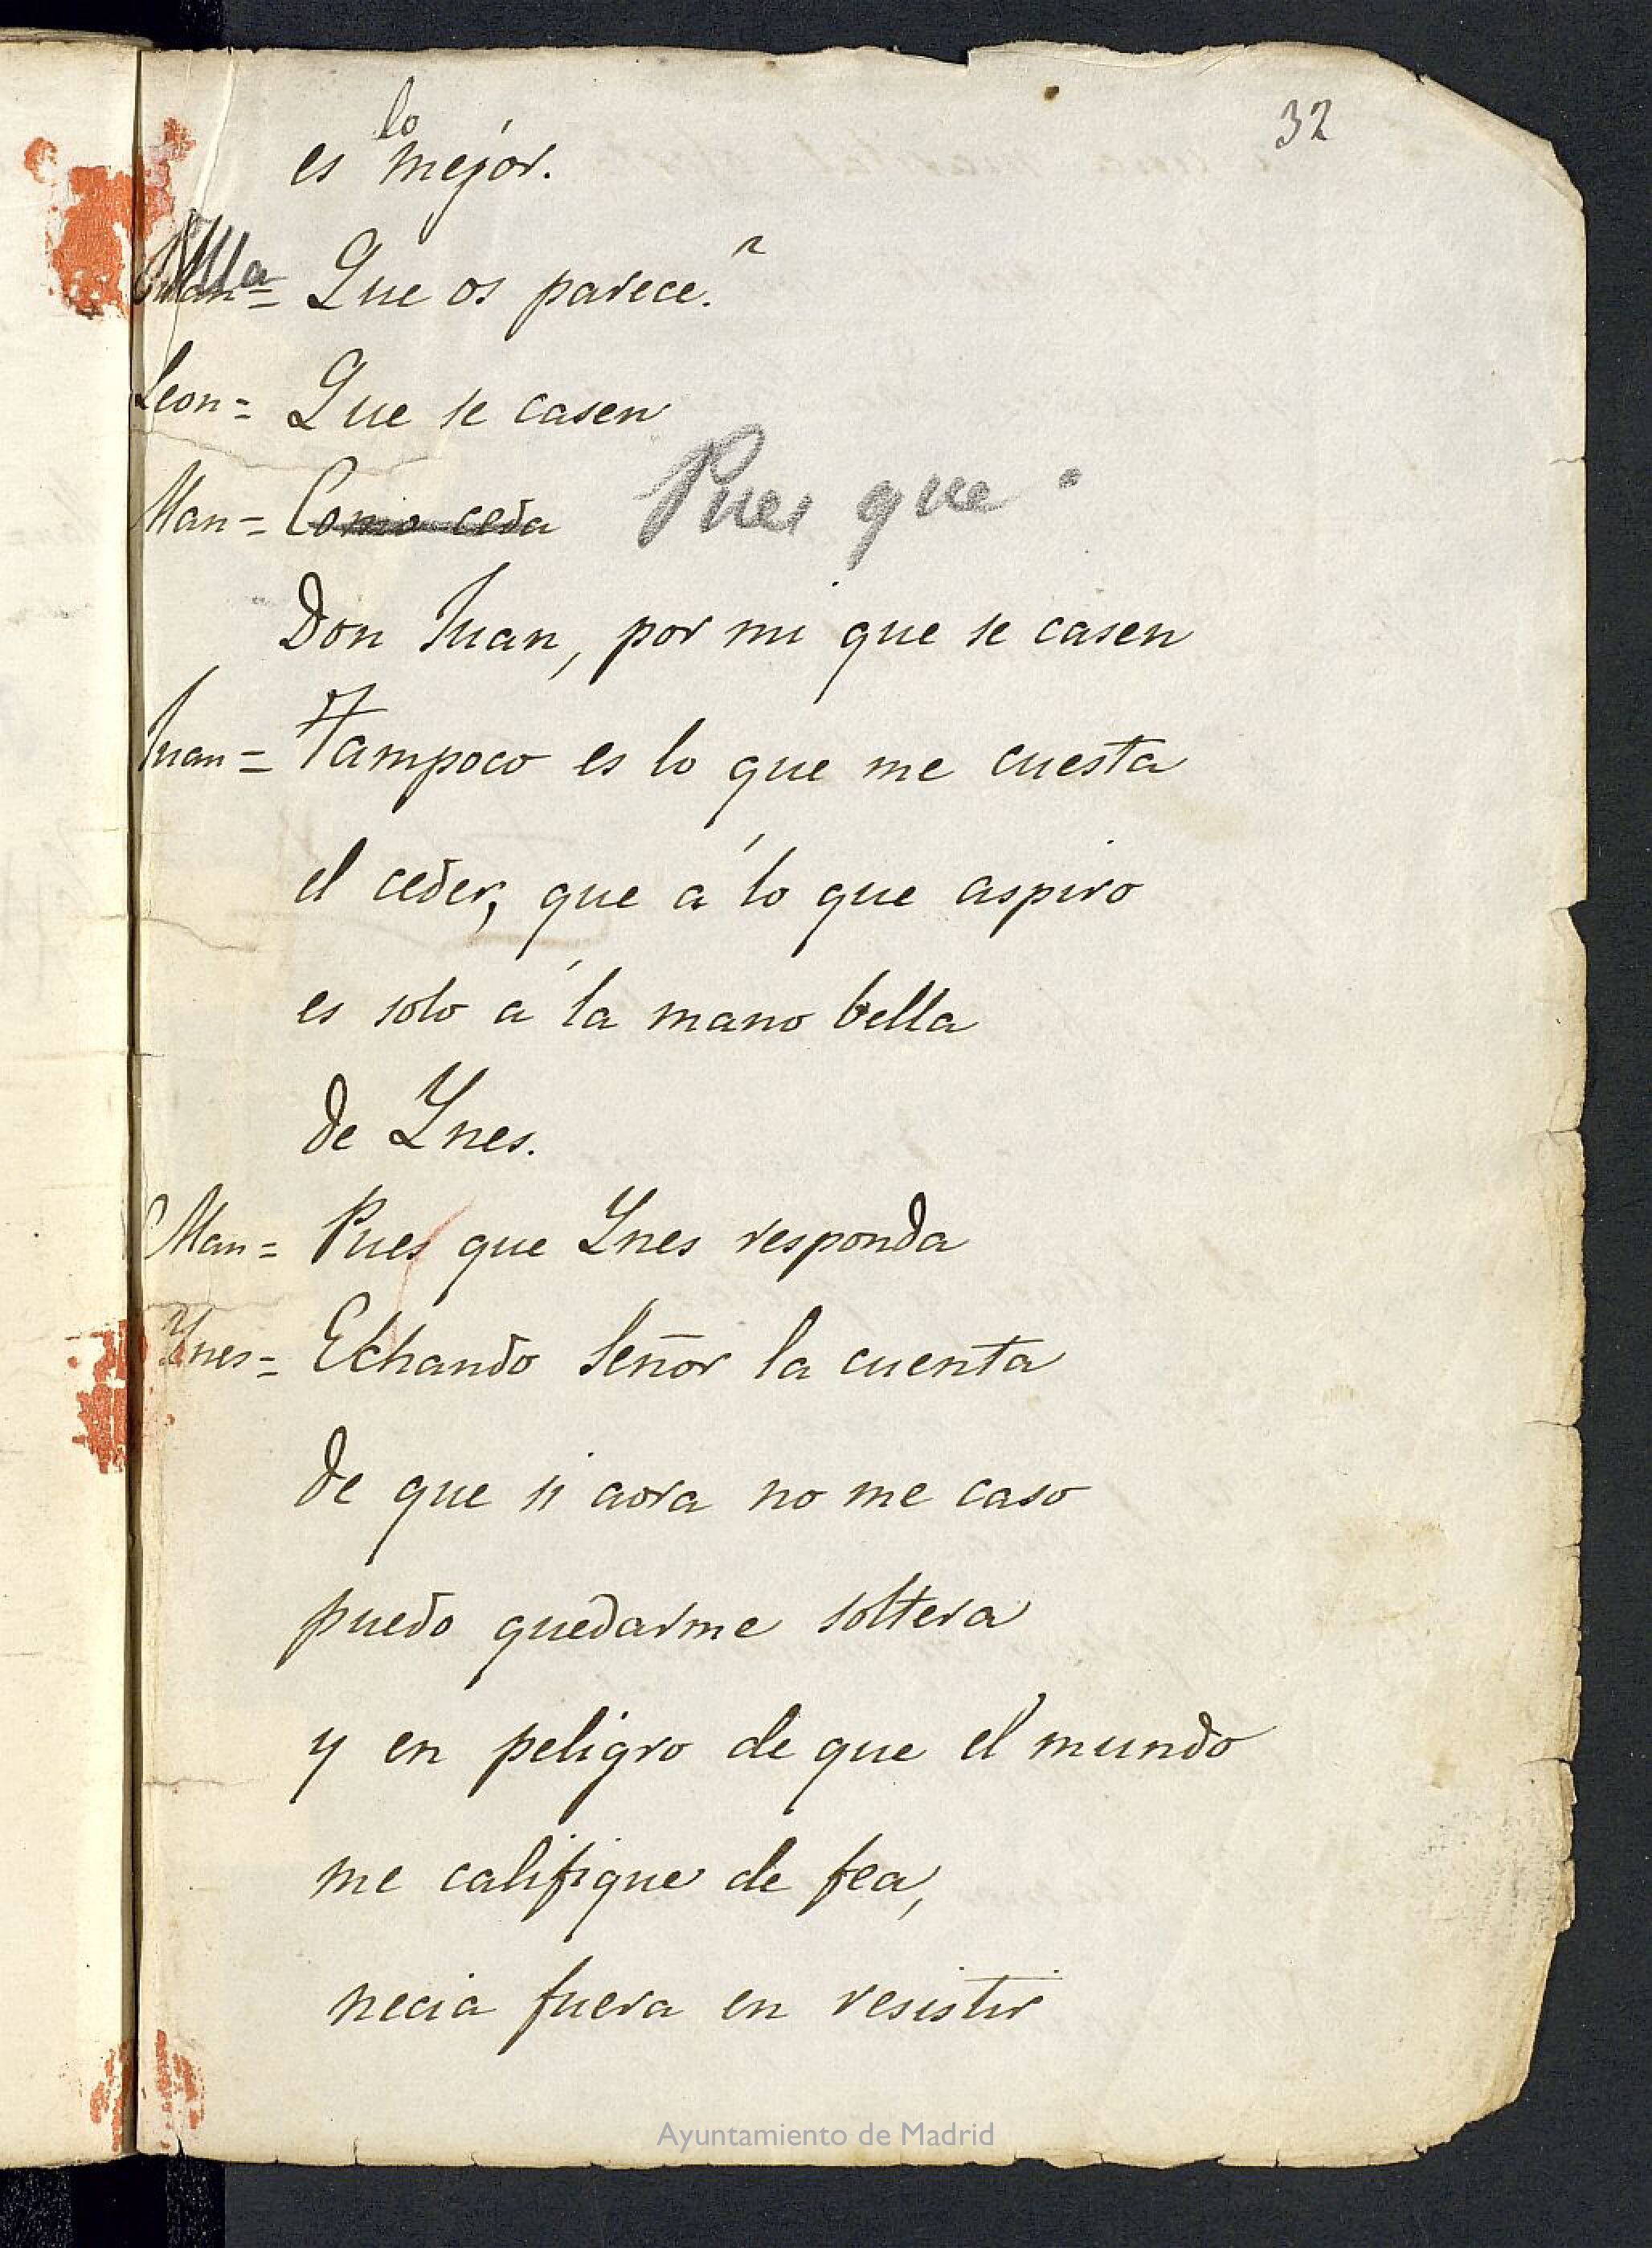 32
es lo mejor.
Que os parece?
Leon = Que se casen
Man = Como ceda Pues que
Don Juan, por mi que se casen
Juan = Tampoco es lo que me cuesta
el ceder, que á lo que aspiro
es solo á la mano bella
de Ynes.
Man = Pues que Ynes responda
Ynes = Echando Señor la cuenta
de que si aora no me caso
puedo quedarme soltera
y en peligro de que el mundo
me califique de fea,
necia fuera en resistir
Ayuntamiento de Madrid